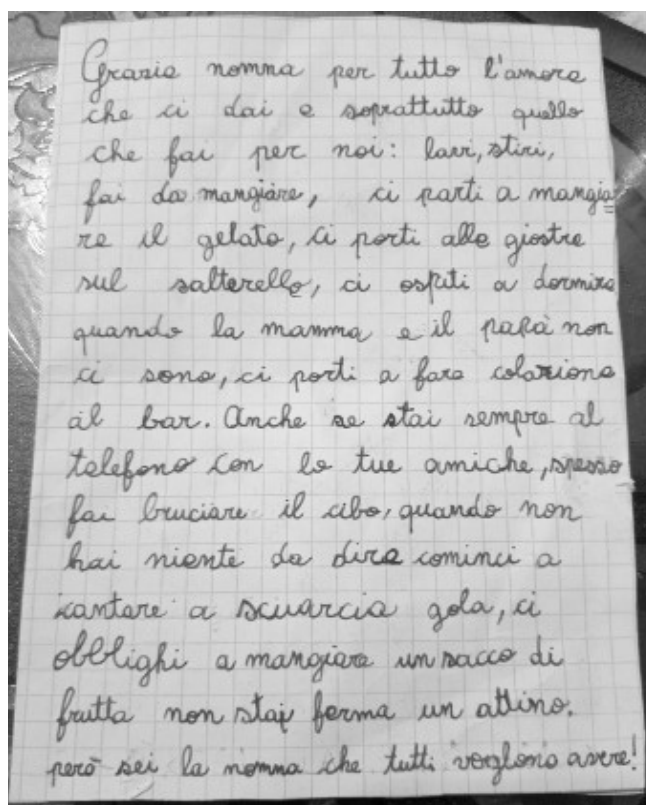 Grazie nonna per tutto l'amore
che ci dai e soprattutto quello
che fai per noi: lavi, stiri,
fai da mangiare, ci parti a mangia
re il gelato, ci porti alle giostre
sul salterello, ci ospiti a dormire
quando la mamma e il papà non
ci sono, ci porti a fare colazione
al bar. Anche se stai sempre al
telefono con le tue amiche, spesso
fai bruciare il cibo, quando non
hai niente da dire cominci a
cantare a scuarcia gola, ci
obblighi a mangiare un sacco di
frutta non stai ferma un attino.
però sei la nonna che tutti vogliono avere!